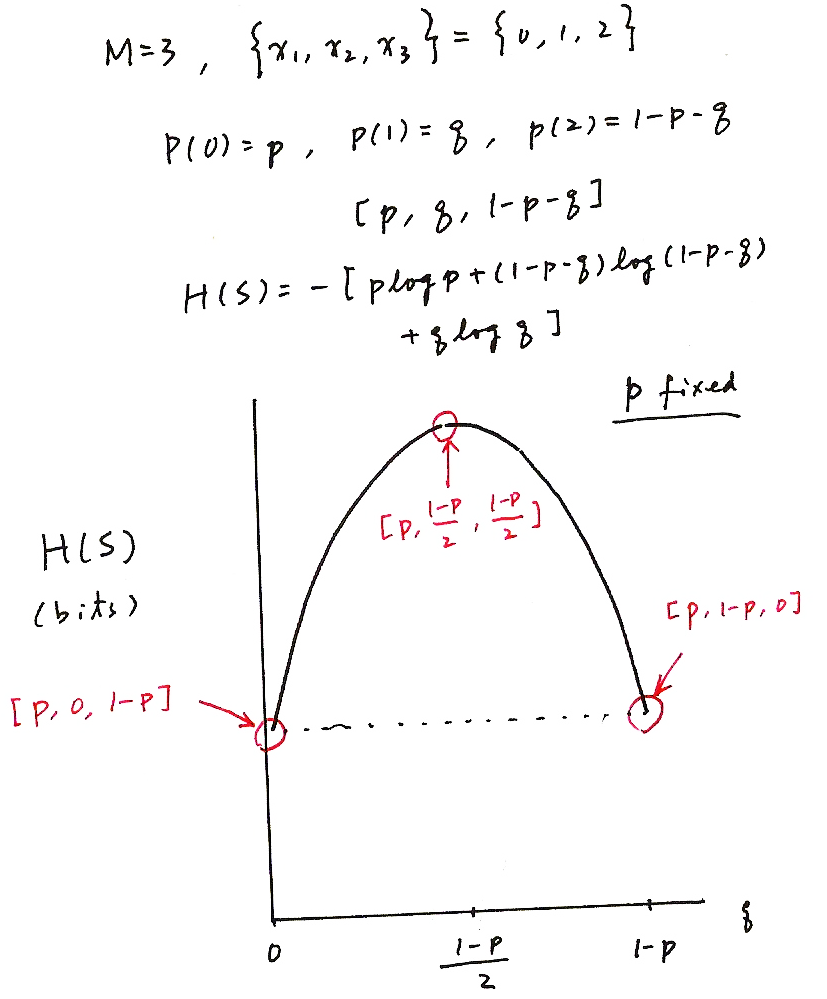 M=3 , {x₁, x₂, x₃} = {0, 1, 2}
P(0) = p , P(1) = q , p(2) = 1-p-q
[p, q, 1-p-q]
H(S) = - [ p log p + (1-p-q) log (1-p-q)
+ q log q ]
p fixed
[p, \frac{1-p}{2}, \frac{1-p}{2}]
H(S)
(bits)
[p, 1-p, 0]
[p, 0, 1-p]
q
0 \frac{1-p}{2} 1-p